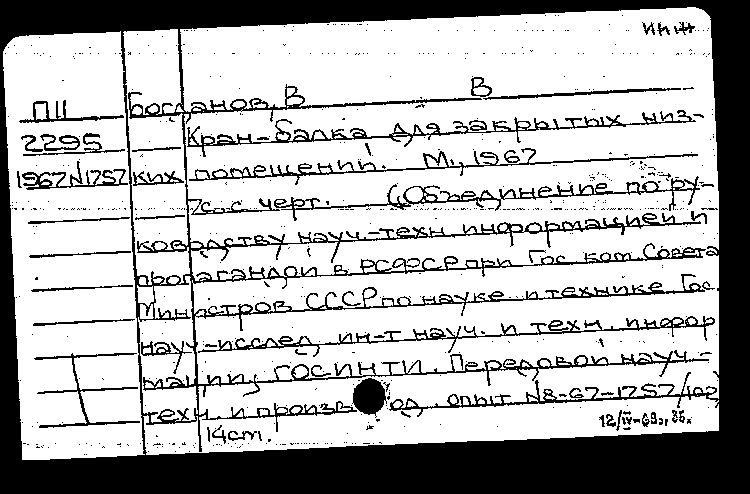 ИНЖ
ПII Богданов, В В
2295 Кран-балка для закрытых низ-
1967 N1757 ких помещений. М., 1967
7с. с черт. (Объединение по ру-
ководству науч.-техн. информацией и
пропагандой в РСФСР при Гос. ком. Совета
Министров СССР по науке и технике. Гос.
науч-исслед. ин-т науч. и техн. информ
мации, ГОСИНТИ. Передовой науч.-
техн. и производ. опыт N8-67-1757/102)
14cm. 12/IV-68г.